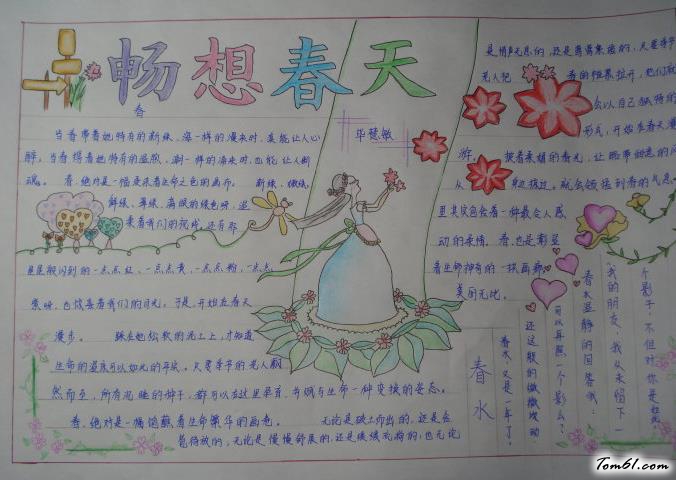 畅想春天
春
毕慧敏
当春带着她特有的新绿,海一样的漫来时,真能让人心
醉。当春携着她特有的温煦,潮一样的涌来时,也能让人断
魂。 春,绝对是一幅饱蘸着生命之色的画布。 新绿、嫩绿、
鲜绿、翠绿、满眼的绿色呀,逗
来着我们的视线。还有那
星星般闪到的一点点红、一点点黄、一点点粉、一点点
紫呀,也惊喜着我们的目光。于是,开始在春天
漫步。 踩在她松软的泥土上,才知道
生命的温床可以如此的平实。只要季节的老人翩
然而至,所有沉睡的种子,都可以在这里孕育,并赋与生命一种变换的姿态。
春,绝对是一幅饱蘸着生命繁华的画卷。 无论是破土而出的,还是含
苞待放的;无论是慢慢舒展的,还是缓缓流淌的;也无论
是悄声无息的,还是莺莺絮语的,只要季节
老人把 春的帷幕拉开,他们就
会以自己独特的
形式,开始在春天漫
游。 披着柔媚的春光,让
从 身边掠过,就会领悟到春的气息
里其实包含着一种最令人感
动的柔情。春,也是彰显
着生命神奇的一块画廊,
美丽无比。
春水
春水又是一年了,
还这般的微微吹动
可以再照一个影么?
春水温静的回答我:
“我的朋友,我从未留下一
个影子,不但对你是如此
Tom61.com